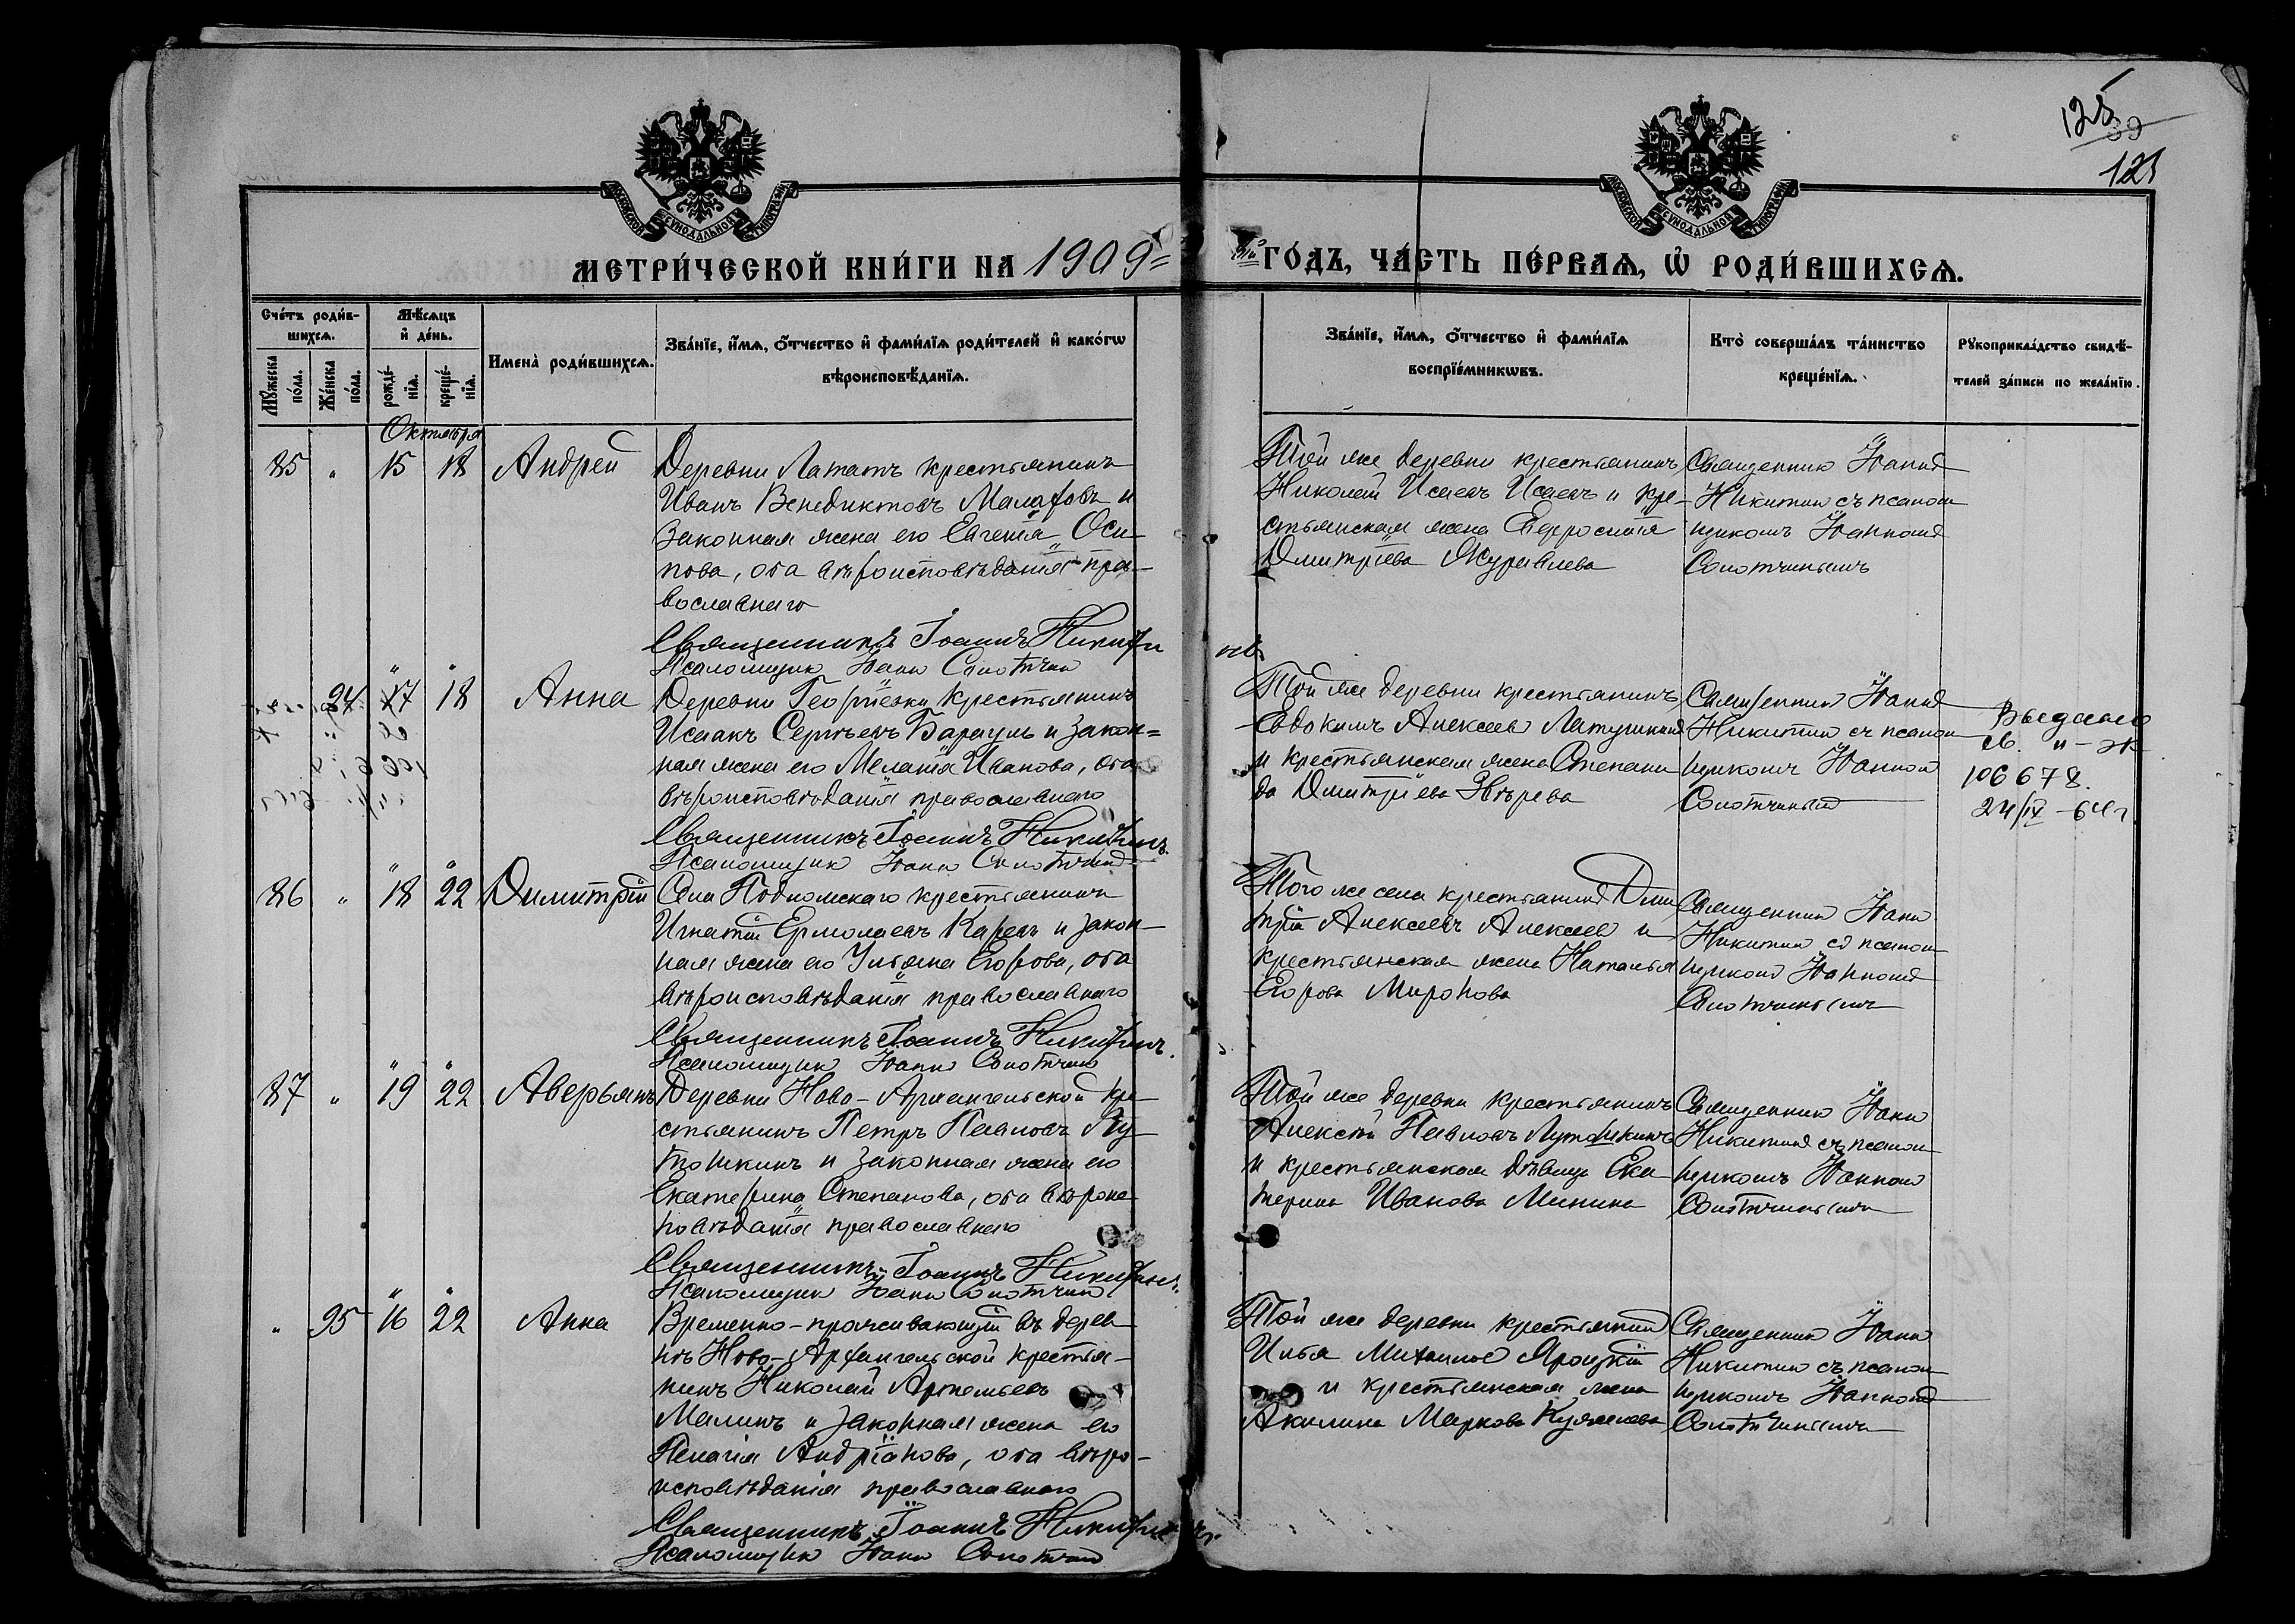 125
39
121
МОСКОВСКОЙ СУНОДАЛЬНОЙ ТИПОГРАФІИ
МОСКОВСКОЙ СУНОДАЛЬНОЙ ТИПОГРАФІИ
МЕТРИ́ЧЕСКОЙ КНИ́ГИ НА 1909=
ГО́ДЪ, ЧА́СТЬ ПЕ́РВАѦ, Ѡ҆ РОДИ́ВШИХСѦ.
Сче́тъ роди́в-
шихсѧ.
Мѣ́сѧцъ
и҆ де́нь.
Имена̀ роди́вшихсѧ.
Зва́нїе, и҆́мѧ, ѻ҆́тчество и҆ фами́лїѧ роди́телей и҆ како́гѡ
вѣроисповѣ́данїѧ.
Мꙋ́жеска
по́ла.
Же́нска
по́ла.
рожде́-
нїѧ.
креще́-
нїѧ.
Зва́нїе, и҆́мѧ, ѻ҆́тчество и҆ фами́лїѧ
воспрїе́мникѡвъ.
Кто̀ соверша́лъ та́инство
креще́нїѧ.
Рꙋкоприкла́дство свидѣ́-
телей за́писи по жела́нїю.
Октября
85 " 15 18 Андрей
Деревни Лататъ крестьянинъ
Иванъ Венедиктовъ Малаховъ и
законная жена его Евгенія Оси-
пова, оба вѣроисповѣданія пра-
вославнаго
Священникъ Іоаннъ Никитинъ
Псаломщик Іоанн Солотчин
Той же деревни крестьянинъ
Николай Исаевъ Исаевъ и кре-
стьянская жена Евфросинія
Дмитріева Журавлева
Священник Іоанн
Никитин съ псалом
щиком Іоанном
Солотчиным
" 94 17 18 Анна
Деревни Георгіевки крестьянинъ
Исаакъ Сергѣевъ Барауль и закон=
ная жена его Меланія Иванова, оба
вѣроисповѣданія православнаго
Священникъ Іоаннъ Никитинъ
Псаломщик Іоанн Солотчин
Той же деревни крестьянинъ
Евдокимъ Алексеев Латушкин
и крестьянская жена Степани
да Дмитріева Звѣрева
Священник Іоанн
Никитин съ псалом
щиком Іоанном
Солотчиным
Выдано
св. и-эк
106678.
24/IX-64г
86 " 18 22 Димитрій
Села Подломскаго крестьянинъ
Игнатій Ермолаевъ Каревъ и закон-
ная жена его Ульяна Егорова, оба
вѣроисповѣданія православнаго
Священникъ Іоаннъ Никитинъ.
Псаломщик Іоанн Солотчин
Того же села крестьянин Дми
трій Алексеевъ Алексеев и
крестьянская жена Наталья
Егорова Миронова
Священник Іоанн
Никитин съ псалом
щиком Іоанном
Солотчиным
87 " 19 22 Аверьянъ
Деревни Ново-Архангельской кре-
стьянинъ Петръ Павловъ Лу-
тошкинъ и законная жена его
Екатерина Степанова, оба вѣроис-
повѣданія православнаго
Священникъ Іоаннъ Никитинъ.
Псаломщик Іоанн Солотчин
Той же деревни крестьянинъ
Алексѣй Павловъ Лутошкинъ
и крестьянская дѣвица Ека-
терина Иванова Минина
Священник Іоанн
Никитин съ псалом
щиком Іоанном
Солотчиным
" 95 16 22 Анна
Временно-проживающій въ дерев
нѣ Ново-Архангельской крестья-
нинъ Николай Артемьевъ
Малинъ и законная жена его
Пелагія Андріанова, оба вѣро-
исповѣданія православнаго
Священникъ Іоаннъ Никитинъ
Псаломщик Іоанн Солотчин
Той же деревни крестьянин
Илья Михаилов Яроцкій
и крестьянская жена
Акилина Маркова
Священник Іоанн
Никитин съ псалом
щиком Іоанном
Солотчиным